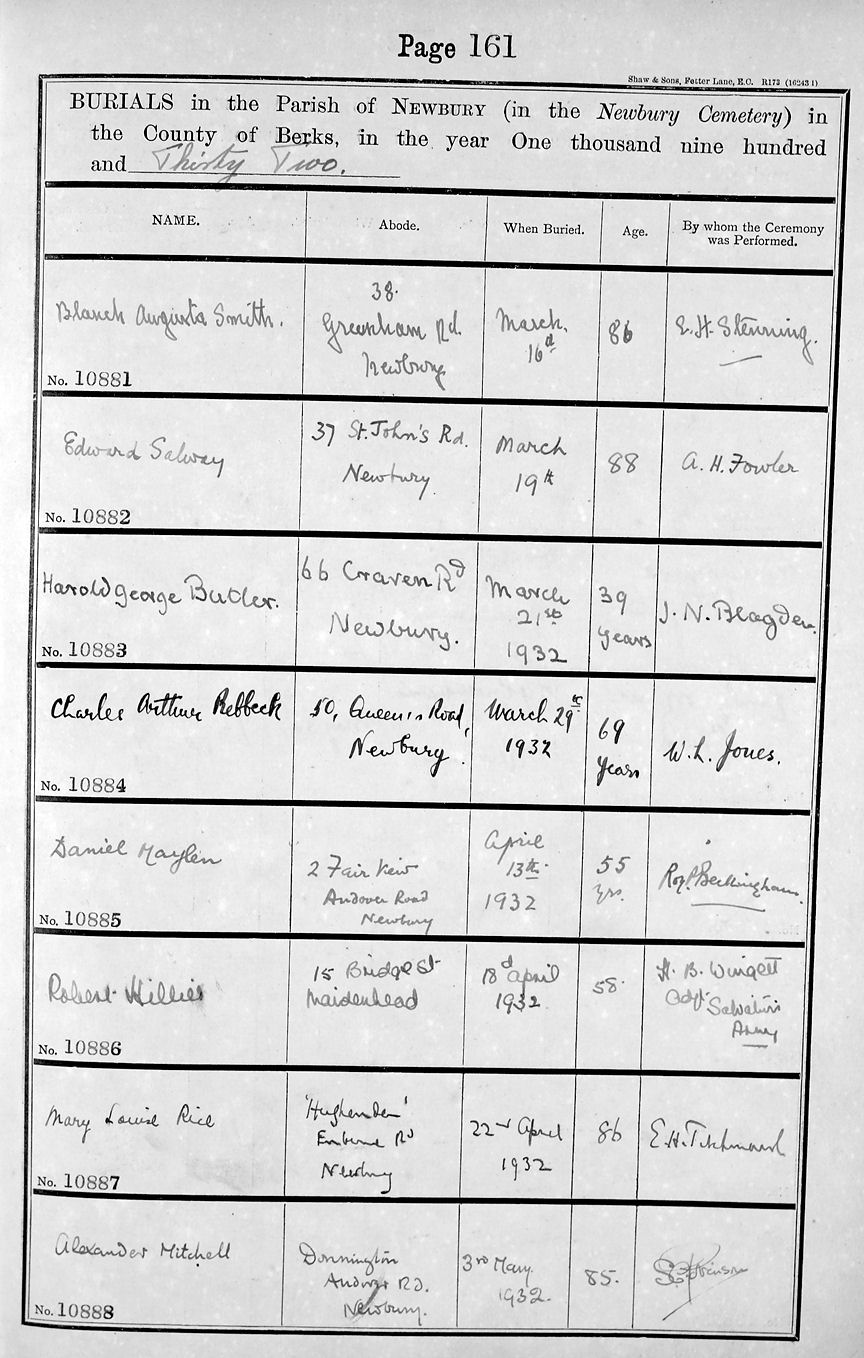 Page 161
Shaw & Sons, Fetter Lane, E.C. R173 (16243 1)
BURIALS in the Parish of NEWBURY (in the Newbury Cemetery) in
the County of Berks, in the year One thousand nine hundred
and Thirty Two.
NAME. Abode. When Buried. Age. By whom the Ceremony
was Performed.
Blanch Augusta Smith. 38. Greenham Rd. Newbury March. 16th 86 E. H. Stenning.
No. 10881
Edward Salway 37 St. John's Rd. Newbury March 19th 88 A. H. Fowler
No. 10882
Harold George Butler. 66 Craven Rd Newbury. March 21st 1932 39 years J. N. Blagden.
No. 10883
Charles Arthur Rebbeck 50, Queen's Road, Newbury. March 29th 1932 69 years W. L. Jones.
No. 10884
Daniel Maylen 2 Fair Veiw Andover Road Newbury April 13th. 1932 55 yrs. Roy P. Beckingham.
No. 10885
Robert Hillier 15 Bridge St Maidenhead 18d April 1932 58. H. B. Wingett Adjt. Salvation Army
No. 10886
Mary Louise Rice 'Hughenden' Enborne Rd Newbury 22nd April 1932 86 E. H.
No. 10887
Alexander Mitchell Donnington Andover RD. Newbury. 3rd May. 1932. 85.
No. 10888